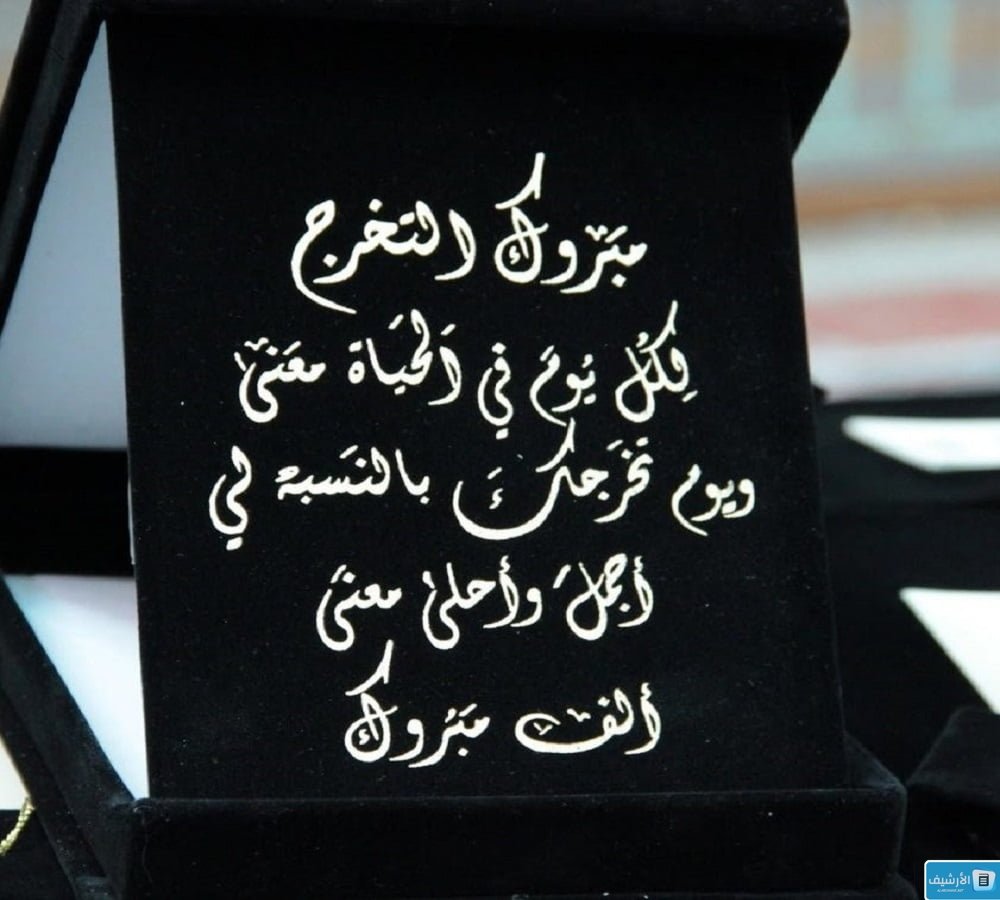 مبروك التخرج
لكل يوم في الحياة معنى
ويوم تخرجك بالنسبه لي
أجمل وأحلى معنى
ألف مبروك
الأرشيف